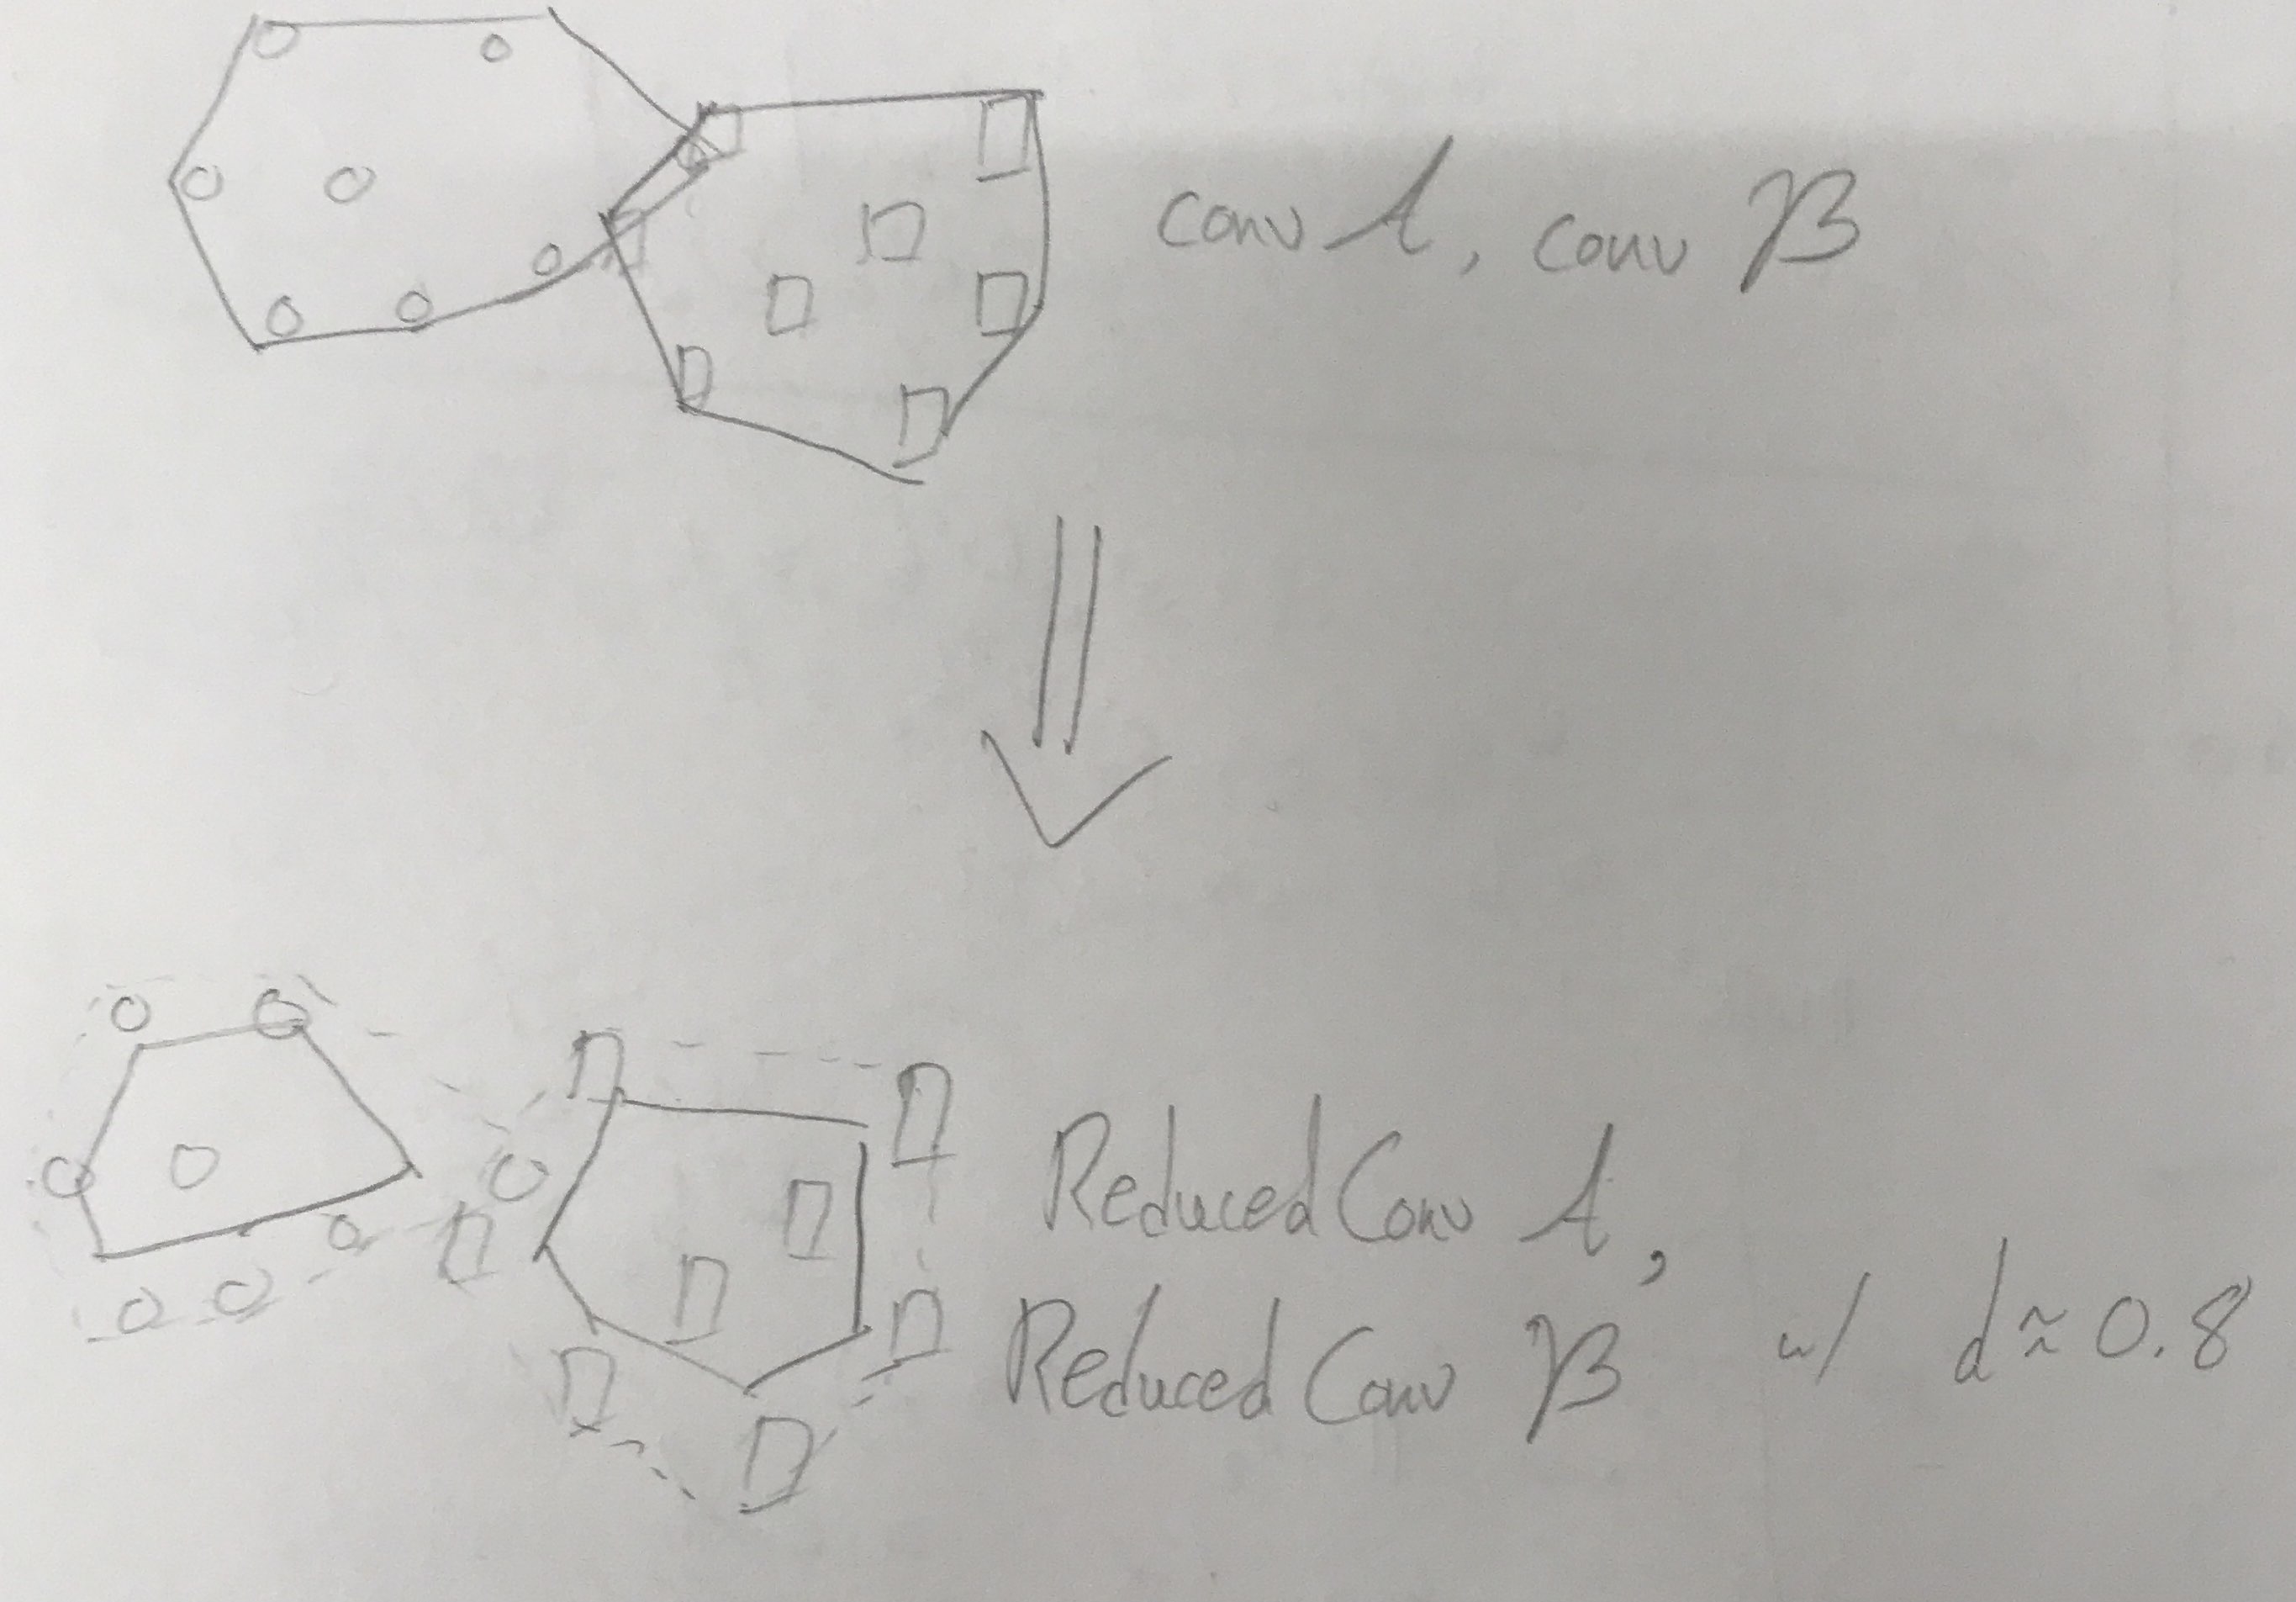 conv A, conv B
Reduced Conv A,
Reduced Conv B w/ d ≈ 0.8